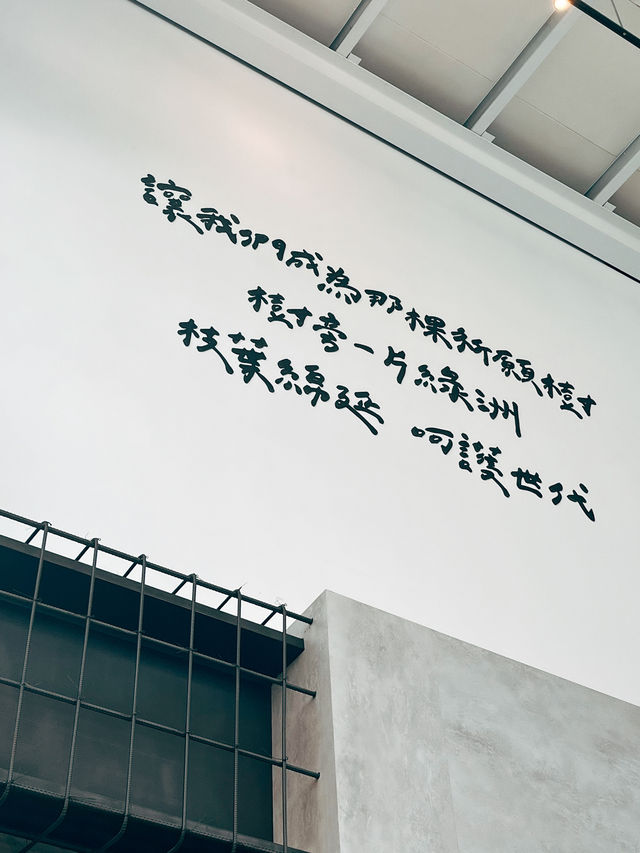 讓我們成為那棵祈願樹
樹旁一片綠洲
枝葉綿延 呵護世代